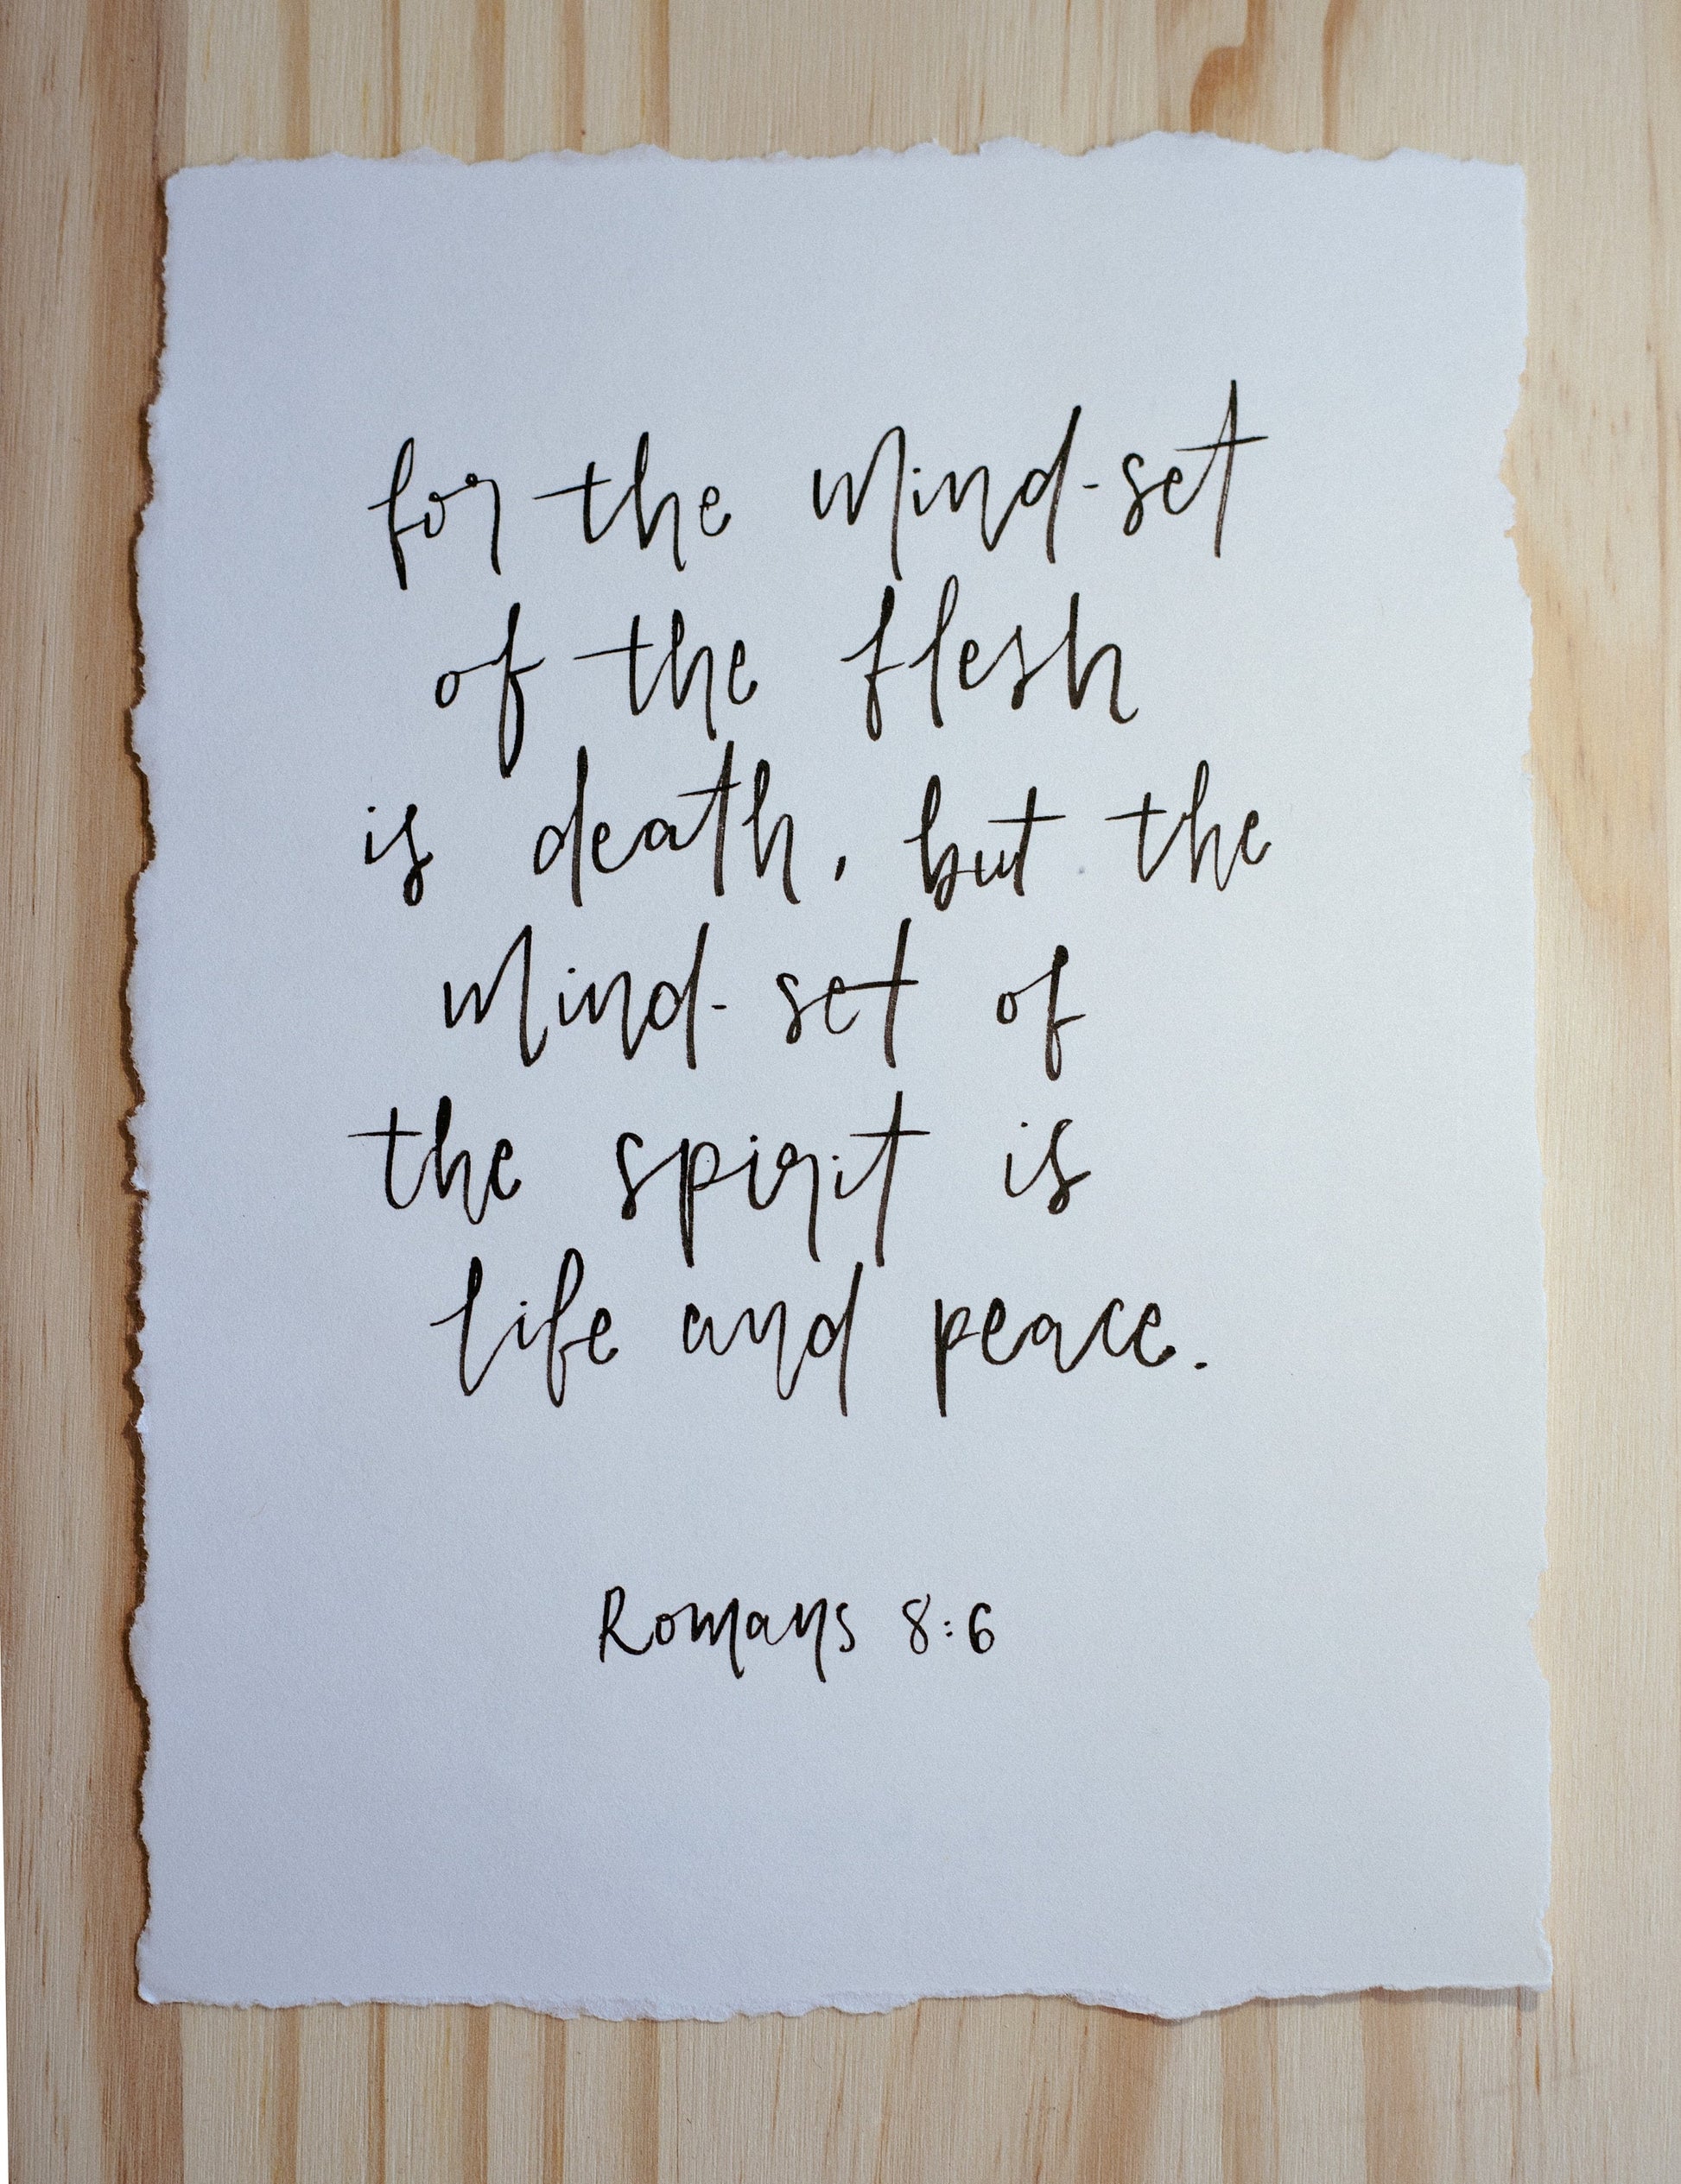 for the mind-set
of the flesh
is death, but the
mind-set of
the spirit is
life and peace.
Romans 8:6